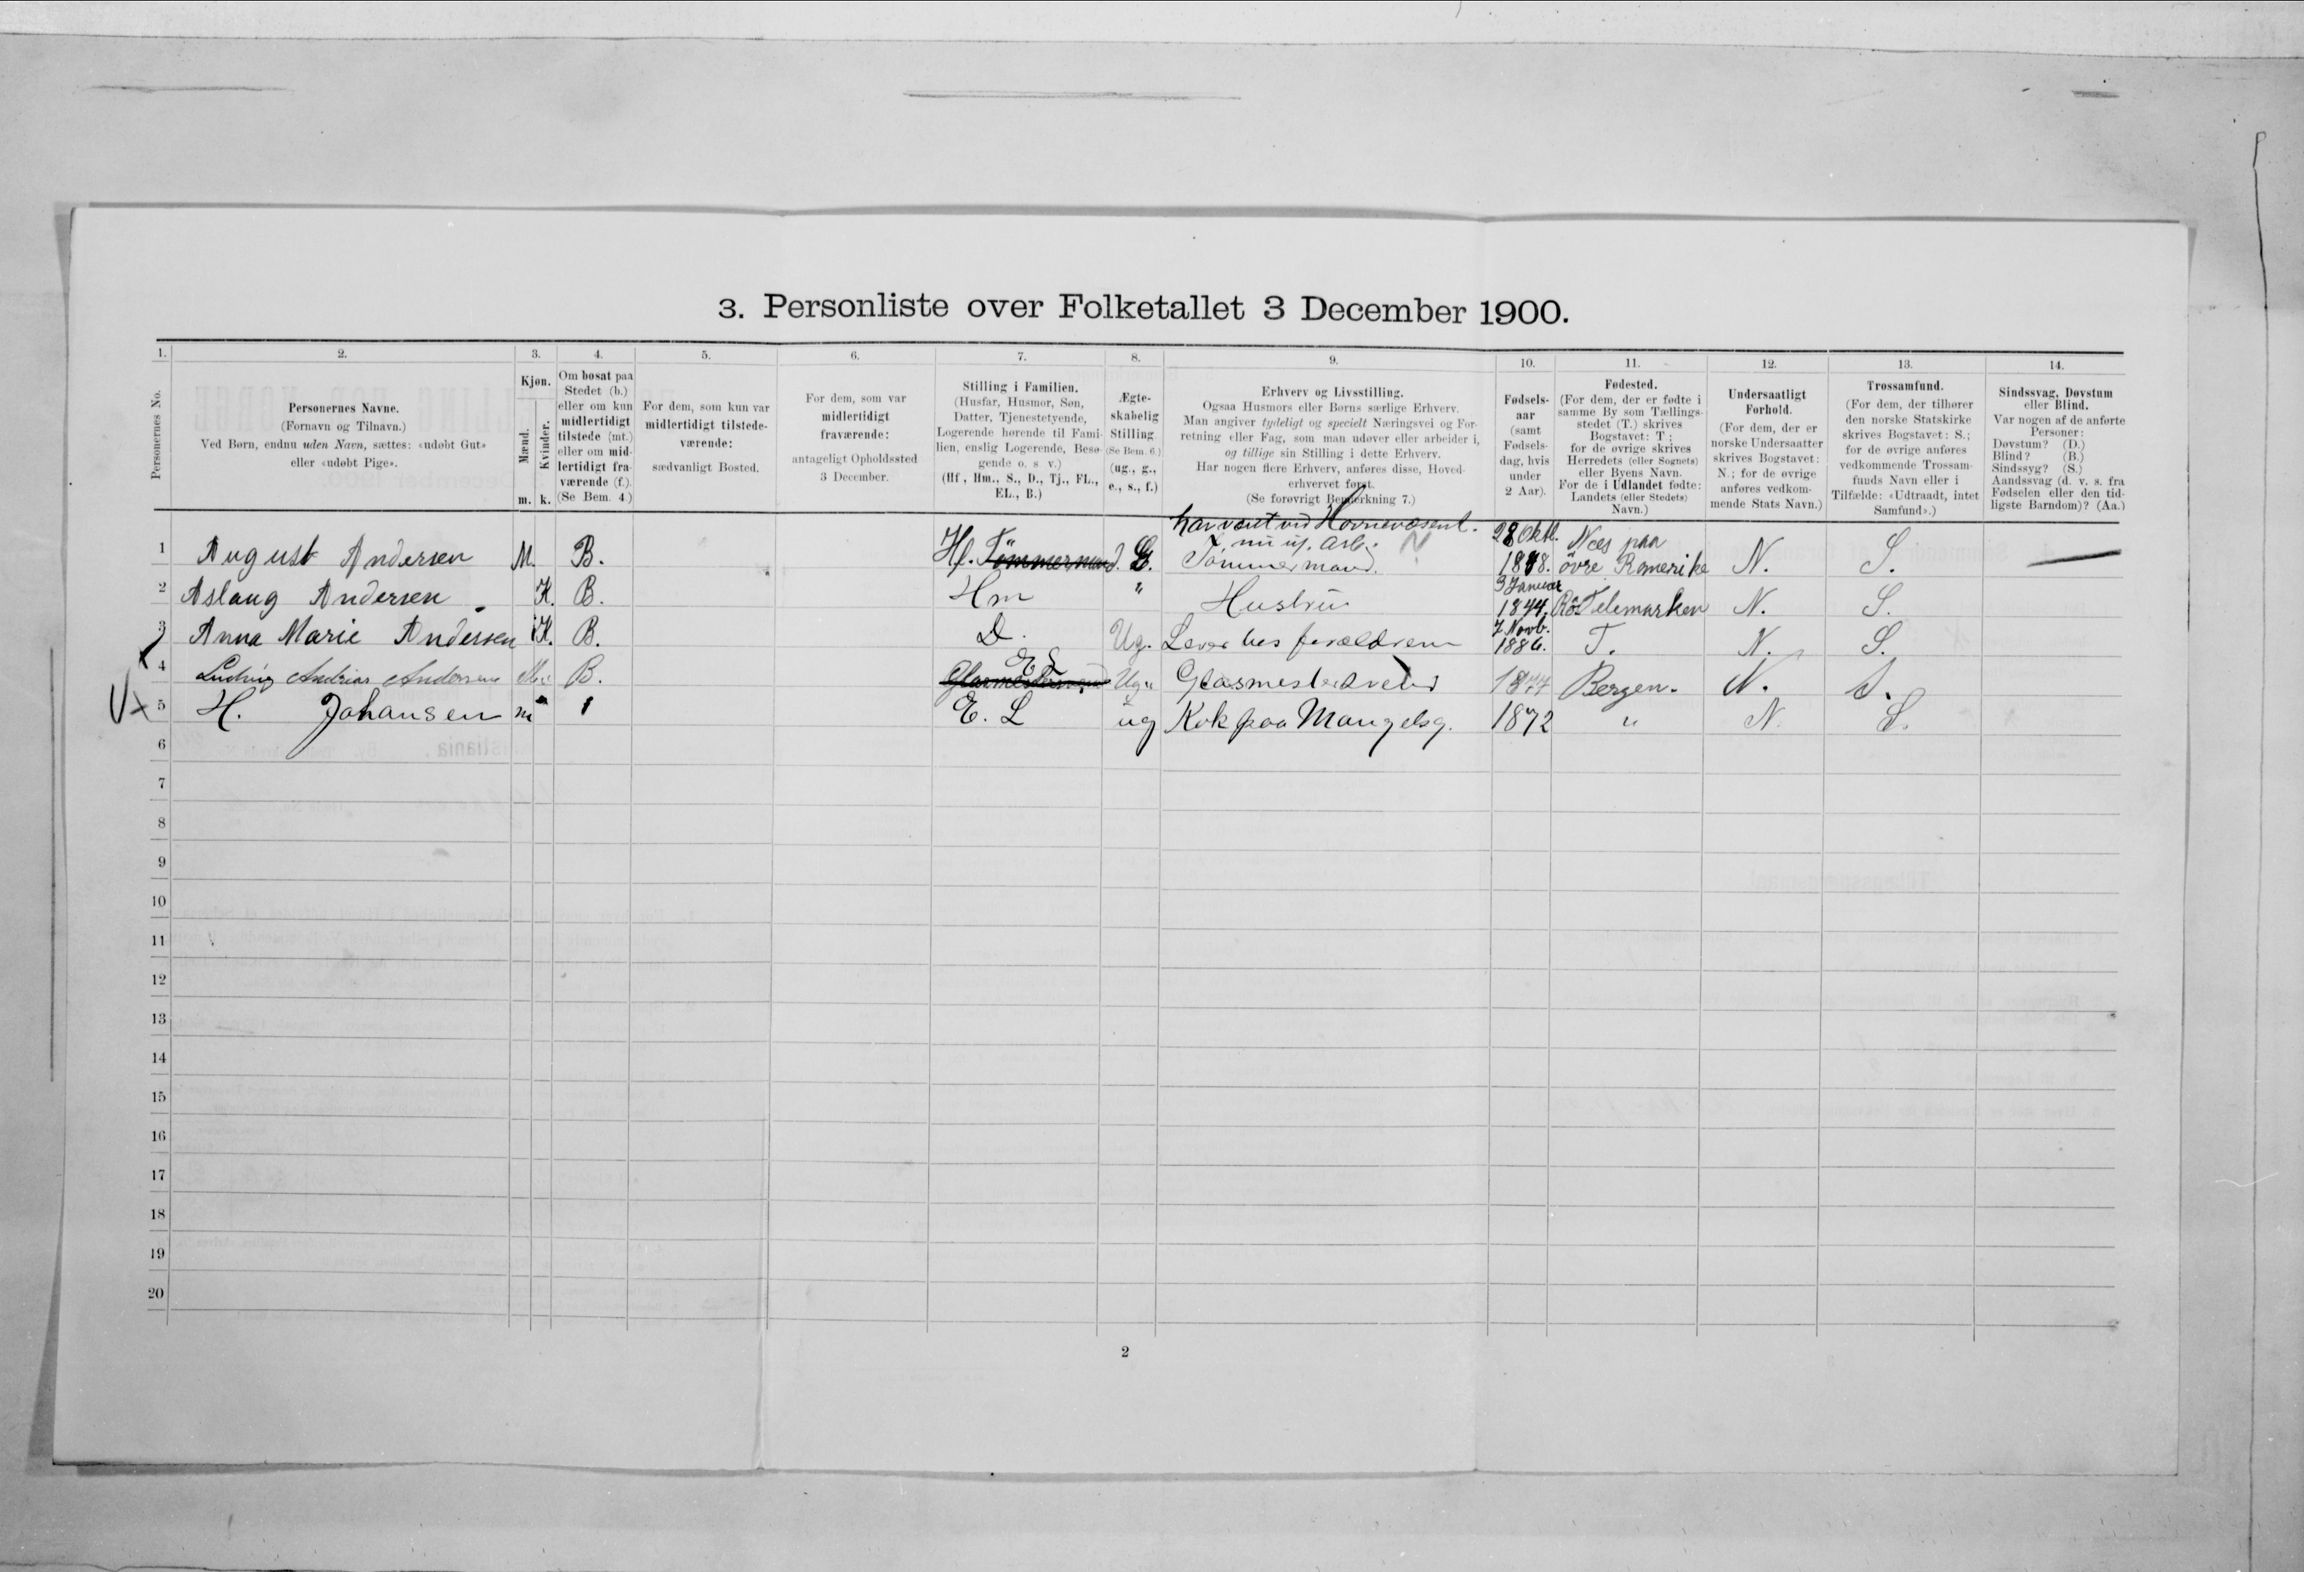 3. Personliste over Folketallet 3 December 1900.
1. 2. 3. 4. 5. 6. 7. 8. 9. 10. 11. 12. 13. 14.
Personernes No.
Personernes Navne.
(Fornavn og Tilnavn.)
Ved Børn, endnu uden Navn, sættes: «udøbt Gut»
eller «udøbt Pige».
Kjøn.
Mænd.
Kvinder.
m. k.
Om bosat paa
Stedet (b.)
eller om kun
midlertidigt
tilstede (mt.)
eller om mid-
lertidigt fra-
værende (f.).
(Se Bem. 4.)
For dem, som kun var
midlertidigt tilstede-
værende:
sædvanligt Bosted.
For dem, som var
midlertidigt
fraværende:
antageligt Opholdssted
3 December.
Stilling i Familien.
(Husfar, Husmor, Søn,
Datter, Tjenestetyende,
Logerende hørende til Fami-
lien, enslig Logerende, Besø-
gende o. s v.)
(Hf, Hm., S., D., Tj., FL.,
EL., B.)
Ægte-
skabelig
Stilling
(Se Bem. 6.)
(ug., g.,
e., s., f.)
Erhverv og Livsstilling.
Ogsaa Husmors eller Børns særlige Erhverv.
Man angiver tydeligt og specielt Næringsvei og For-
retning eller Fag, som man udøver eller arbeider i,
og tillige sin Stilling i dette Erhverv.
Har nogen flere Erhverv, anføres disse, Hoved-
erhvervet først.
(Se forøvrigt Bemerkning 7.)
Fødsels-
aar
(samt
Fødsels-
dag, hvis
under
2 Aar).
Fødested.
(For dem, der er fødte i
samme By som Tællings-
stedet (T.) skrives
Bogstavet: T;
for de øvrige skrives
Herredets (eller Sognets)
eller Byens Navn.
For de i Udlandet fødte:
Landets (eller Stedets)
Navn.)
Undersaatligt
Forhold.
(For dem, der er
norske Undersaatter
skrives Bogstavet:
N.; for de øvrige
anføres vedkom-
mende Stats Navn.)
Trossamfund.
(For dem, der tilhører
den norske Statskirke
skrives Bogstavet: S.;
for de øvrige anføres
vedkommende Trossam-
funds Navn eller i
Tilfælde: «Udtraadt, intet
Samfund».)
Sindssvag, Døvstum
eller Blind.
Var nogen af de anførte
Personer:
Døvstum? (D.)
Blind? (B.)
Sindssyg? (S.)
Aandssvag (d. v. s. fra
Fødselen eller den tid-
ligste Barndom)? (Aa.)
har været ved Havnevæsent. 28 Oktb. Næs paa
1 August Andersen M. B. Hf. Tömmermand. G. Tömmermand. nu uf. Arb. N 1848. övre Romerike N. S.
3 Januar
2 Aslaug Andersen K. B. Hm " Hustru 1844. Telemarken N. S.
7 Novb.
3 Anna Marie Andersen K. B. D. Ug. Lever hos forældrene 1886. T. N. S.
E L
4 Ludvig Andrias Andersen M. B. Ug. Glasmestersvend 1877 Bergen. N. S.
5 H. Johansen m E. L ug Kok paa Mangelsg. 1872 " N. S.
6
7
8
9
10
11
12
13
14
15
16
17
18
19
20
2